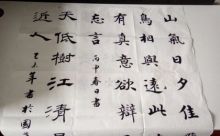 山氣日夕佳
鳥相與還此
有真意欲辯
忘言 丙申春日書
天低樹江清
近人 年書於國